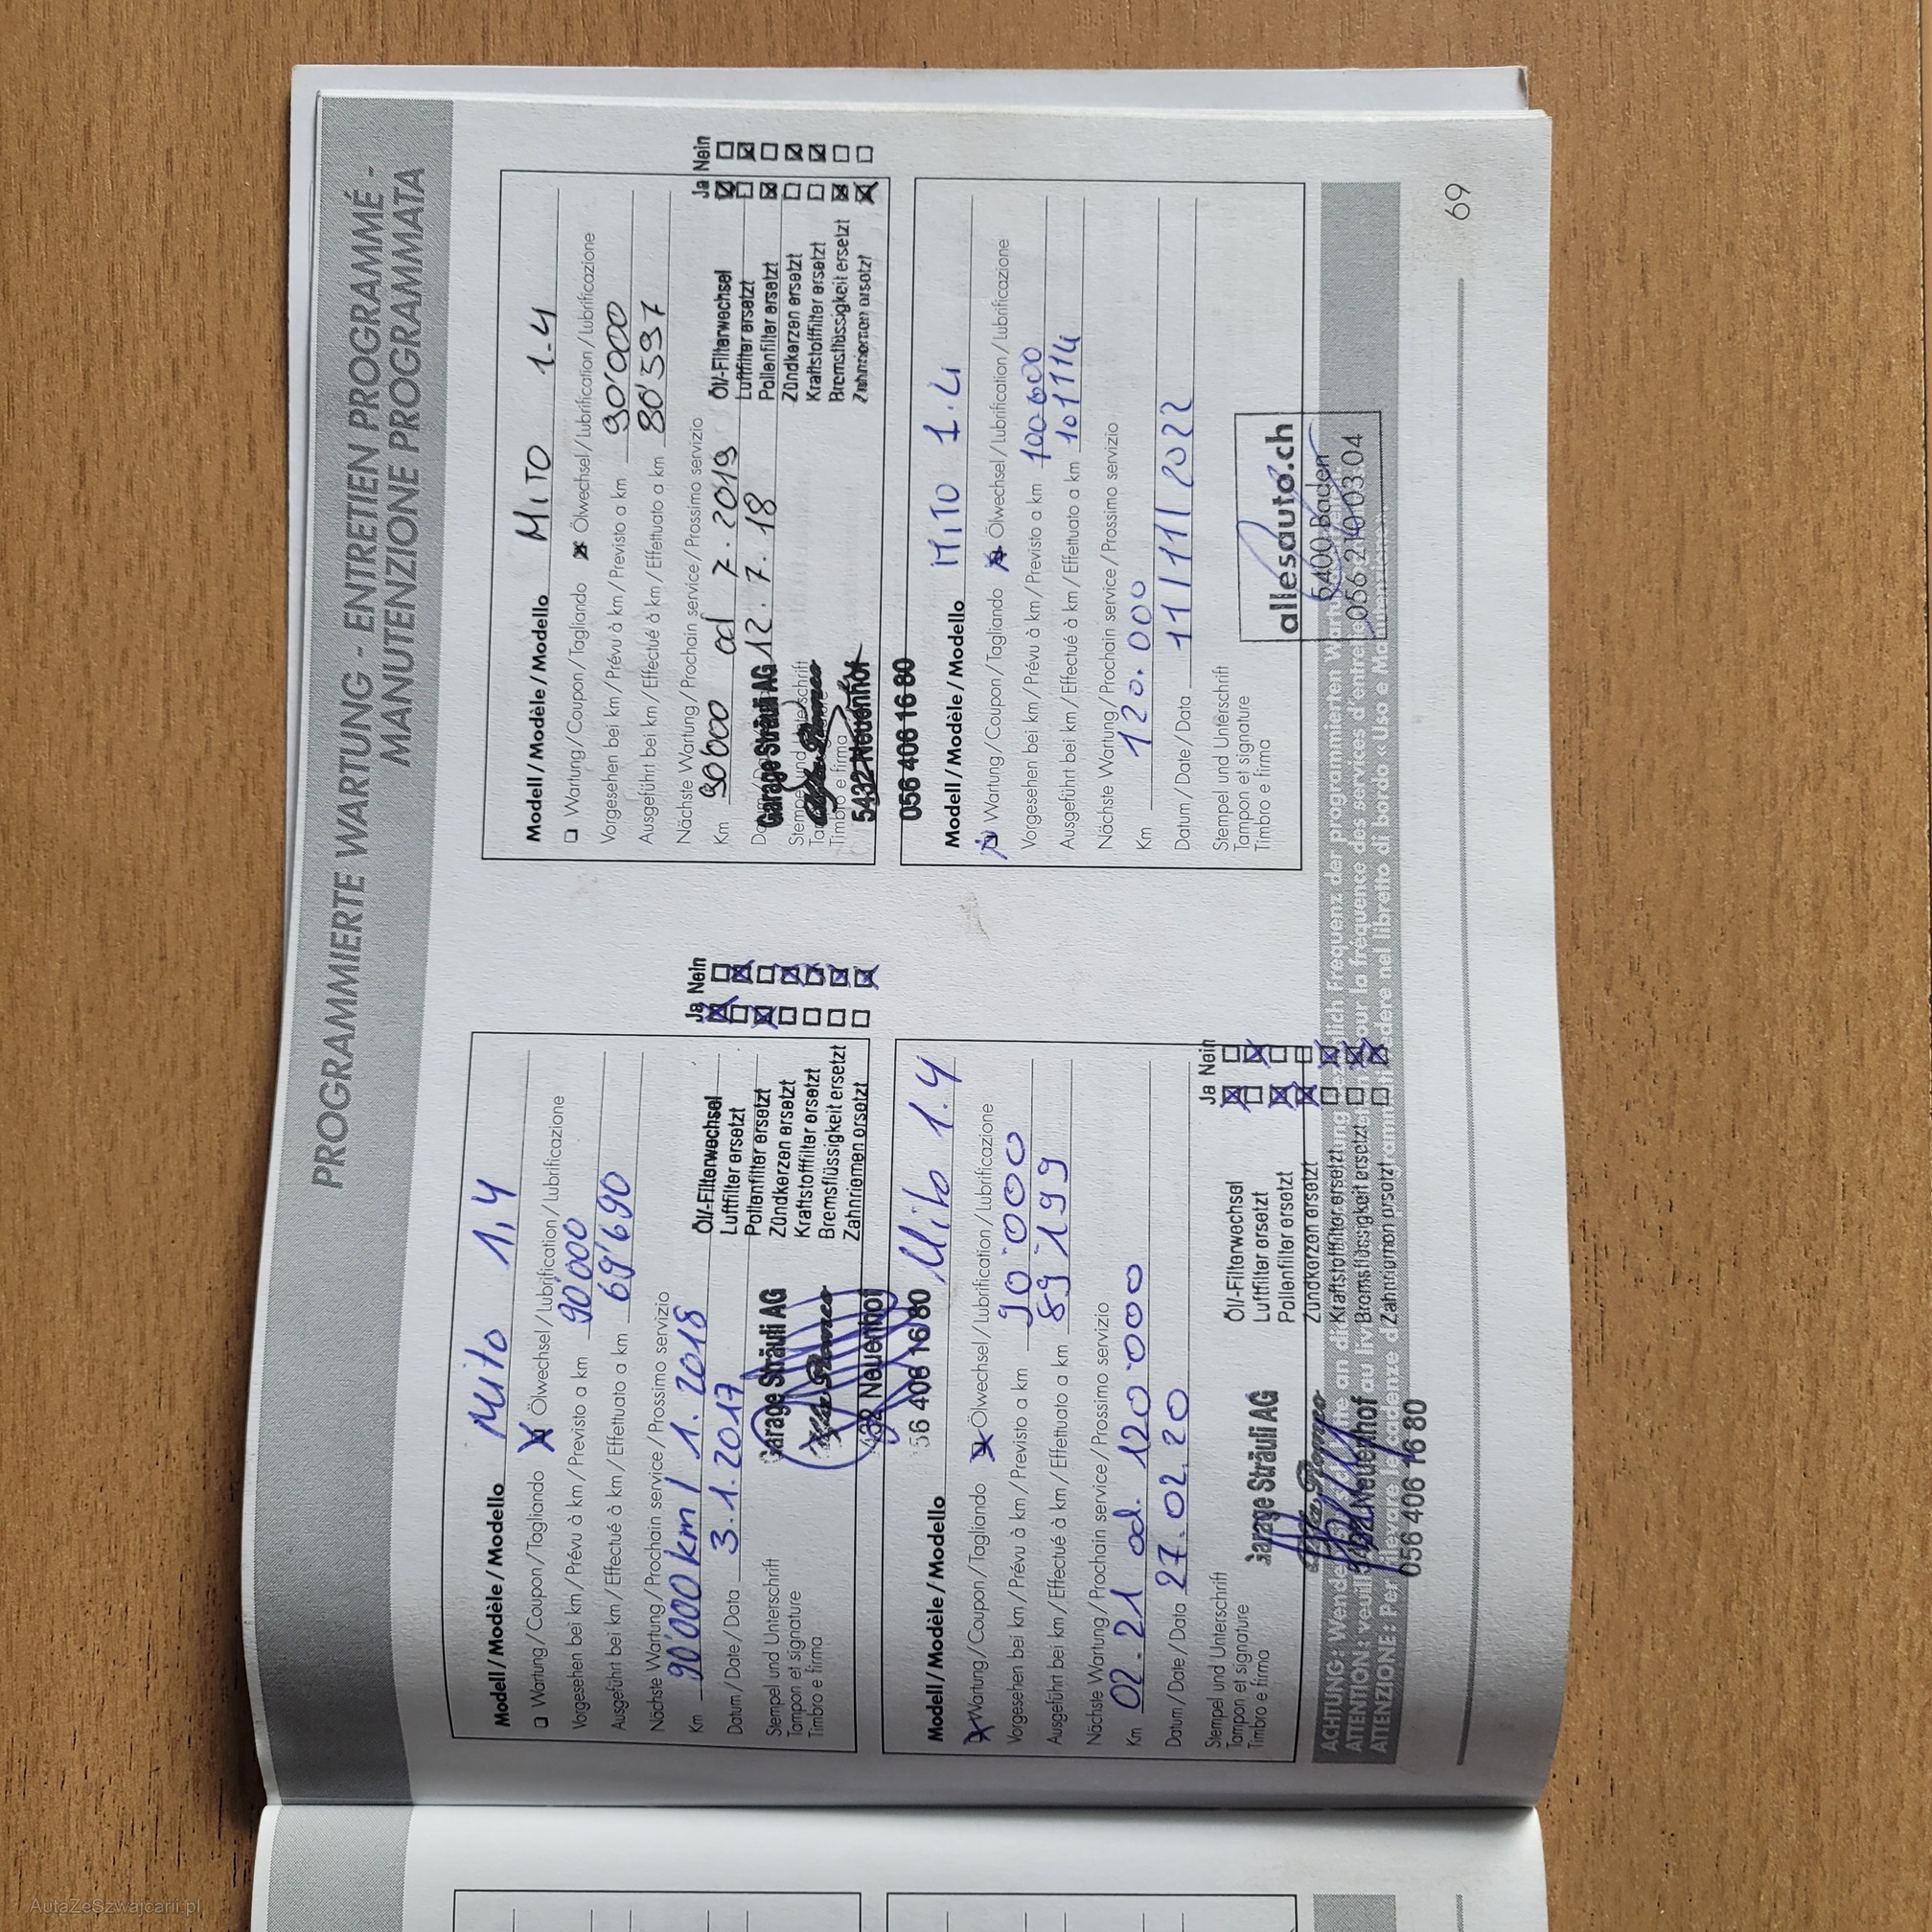 PROGRAMMIERTE WARTUNG - ENTRETIEN PROGRAMMÉ -
MANUTENZIONE PROGRAMMATA
Modell / Modèle / Modello Mito 1,4
Wartung / Coupon / Tagliando Ölwechsel / Lubrification / Lubrificazione
Vorgesehen bei km / Prévu à km / Previsto a km 90'000
Ausgeführt bei km / Effectué à km / Effettuato a km 69'690
Nächste Wartung / Prochain service / Prossimo servizio
Km 90'000 km / 1. 2018
Datum / Date / Data 3.1.2017
Stempel und Unterschrift
Tampon et signature
Timbro e firma
Garage Sträuli AG
Alfa Romeo
5432 Neuenhof
056 406 16 80
Ja Nein
Öl/-Filterwechsel
Luftfilter ersetzt
Pollenfilter ersetzt
Zündkerzen ersetzt
Kraftstofffilter ersetzt
Bremsflüssigkeit ersetzt
Zahnriemen ersetzt
Modell / Modèle / Modello MITO 1.4
Wartung / Coupon / Tagliando Ölwechsel / Lubrification / Lubrificazione
Vorgesehen bei km / Prévu à km / Previsto a km 90'000
Ausgeführt bei km / Effectué à km / Effettuato a km 80'597
Nächste Wartung / Prochain service / Prossimo servizio
Km 90'000 od 7. 2019
12. 7. 18
Garage Sträuli AG
Alfa Romeo
Timbro e firma
5432 Neuenhof
056 406 16 80
Ja Nein
Öl/-Filterwechsel
Luftfilter ersetzt
Pollenfilter ersetzt
Zündkerzen ersetzt
Kraftstofffilter ersetzt
Bremsflüssigkeit ersetzt
Zahnriemen ersetzt
Modell / Modèle / Modello Mito 1.4
Wartung / Coupon / Tagliando Ölwechsel / Lubrification / Lubrificazione
Vorgesehen bei km / Prévu à km / Previsto a km 90'000
Ausgeführt bei km / Effectué à km / Effettuato a km 89'199
Nächste Wartung / Prochain service / Prossimo servizio
Km 02.21 od. 120'000
Datum / Date / Data 27.02.20
Stempel und Unterschrift
Tampon et signature
Timbro e firma
Garage Sträuli AG
Alfa Romeo
5432 Neuenhof
056 406 16 80
Ja Nein
Öl/-Filterwechsel
Luftfilter ersetzt
Pollenfilter ersetzt
Zündkerzen ersetzt
Kraftstofffilter ersetzt
Bremsflüssigkeit ersetzt
Zahnriemen ersetzt
Modell / Modèle / Modello MiTO 1.4
Wartung / Coupon / Tagliando Ölwechsel / Lubrification / Lubrificazione
Vorgesehen bei km / Prévu à km / Previsto a km 100600
Ausgeführt bei km / Effectué à km / Effettuato a km 101114
Nächste Wartung / Prochain service / Prossimo servizio
Km 120.000
Datum / Date / Data 11/11/2022
Stempel und Unterschrift
Tampon et signature
Timbro e firma
allesauto.ch
5400 Baden
056 210 03 04
ACHTUNG: Frequenz der programmierten
ATTENTION: pour la fréquence des services
ATTENZIONE: Per rilevare nel libretto di bordo « Uso e
69
AutaZeSzwajcarii.pl